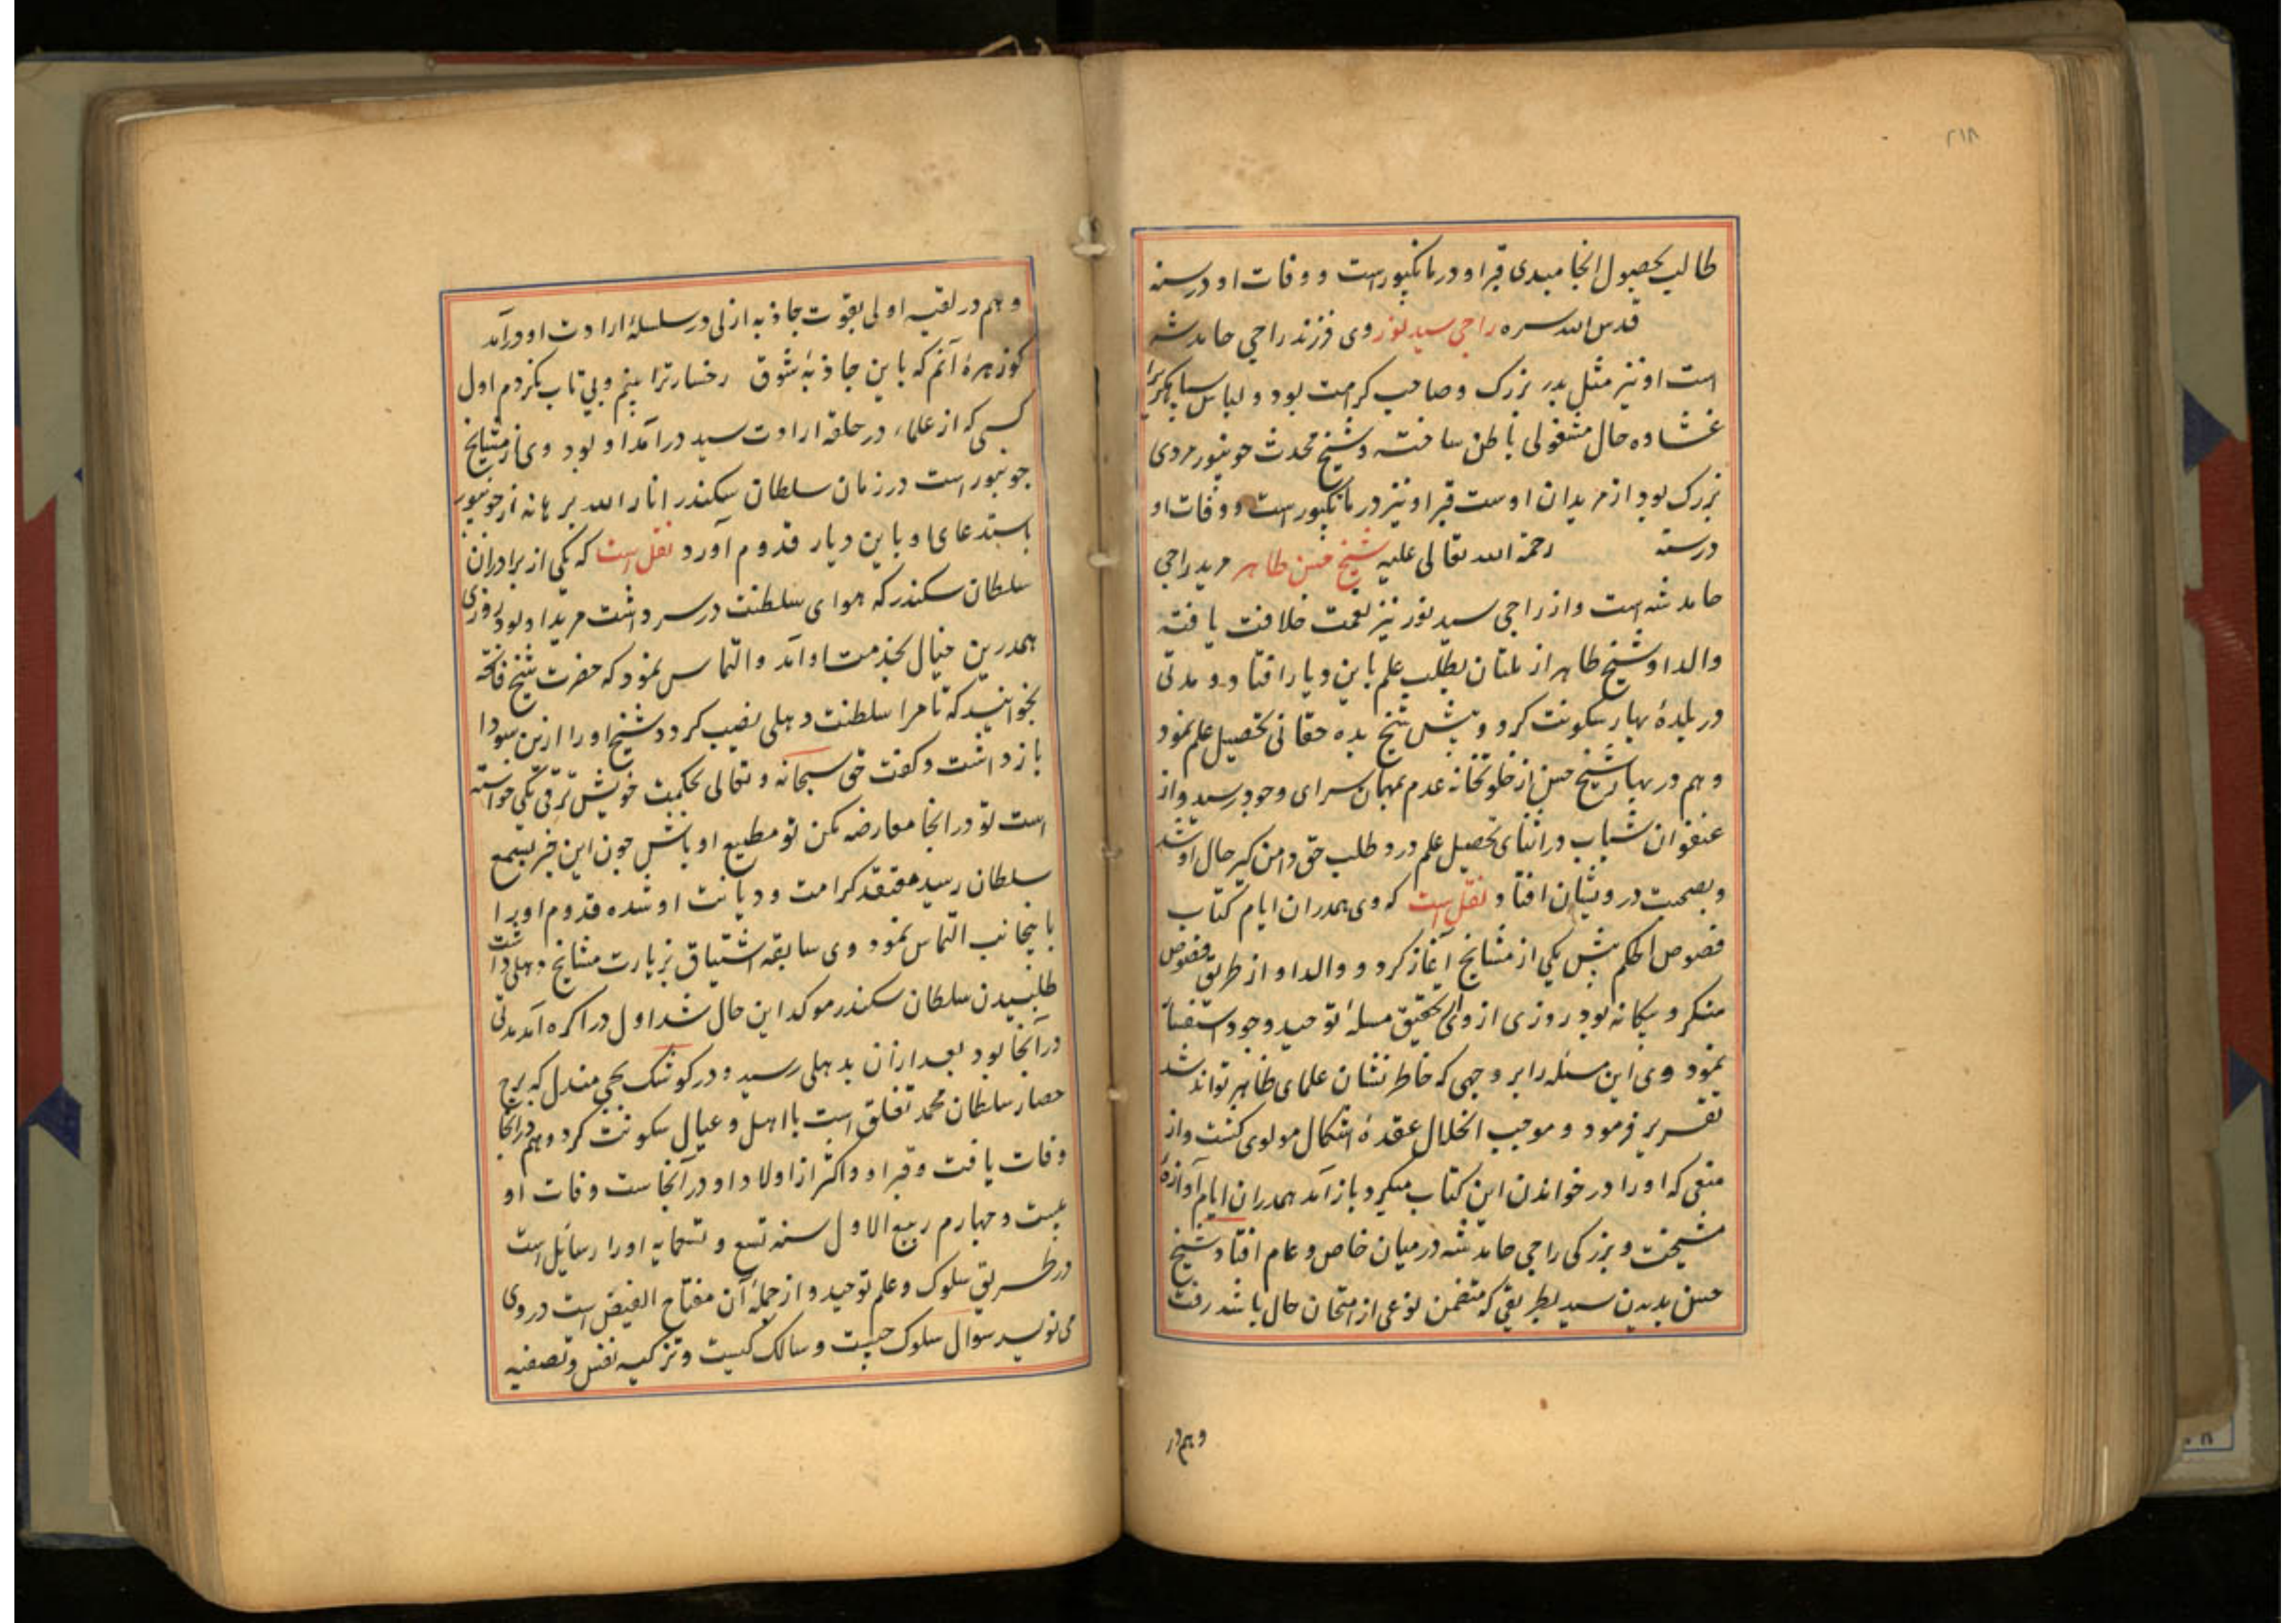 ۲۱۸
طالب بحصول انجامیدی قبر او در مانکپور است و وفات او در سنه
قدس الله سره راجی سید نور وی فرزند راجی حامد شه
است او نیز مثل پدر بزرک و صاحب کرامت بود و لباس سپاهکری را
غشاوه حال مشغولی باطن ساخته و شیخ محدث جونپور مردی
بزرک بود از مریدان اوست قبر او نیز در مانکپور است و وفات او
در سنه رحمة الله تعالی علیه شیخ حسن طاهر مرید راجی
حامد شه است و از راجی سید نور نیز نعمت خلافت یافته
والد او شیخ طاهر از ملتان بطلب علم باین دیار افتاد و مدتی
در بلدهٔ بهار سکونت کرد و پیش شیخ بده حقانی تحصیل علم نمود
و هم در بهار شیخ حسن از خلوتخانه عدم بمهمان سرای وجود رسید و از
عنفوان شباب در اثنای تحصیل علم درد طلب حق دامن کیر حال او شد
و بصحبت درویشان افتاد نقل است که وی همدران ایام کتاب
فصوص الحکم پیش یکی از مشایخ آغاز کرد و والد او از طریق فصوص
منکر و بیکانه بود روزی از وی تحقیق مسلهٔ توحید وجود استفسار
نمود وی این مسئله را بر وجهی که خاطر نشان علمای ظاهر تواند شد
تقریر فرمود و موجب انحلال عقدهٔ اشکال مولوی کشت و از
منعی که او را در خواندن این کتاب میکرد باز آمد همدران ایام آوازهٔ
مشیخت و بزرکی راجی حامد شه در میان خاص و عام افتاد شیخ
حسن بدیدن سید بطریقی که متضمن نوعی از امتحان حال باشد رفت
و هم در
و هم در لقیه اولی بقوت جاذبه ازلی در سلسلهٔ ارادت او درآمد
کو زهرهٔ آنم که باین جاذبهٔ شوق رخسار ترا بینم و بی تاب نکردم اول
کسی که از علماء در حلقه ارادت سید درآمد او بود وی از مشایخ
جونپور است در زمان سلطان سکندر انار الله برهانه از جونپور
باستدعای او باین دیار قدوم آورد نقل است که یکی از برادران
سلطان سکندر که هوای سلطنت در سر داشت مرید او بود روزی
همدرین خیال بخدمت او آمد و التماس نمود که حضرت شیخ فاتحه
بخوانید که تا مرا سلطنت دهلی نصیب کردد شیخ او را ازین سودا
باز داشت و کفت حق سبحانه و تعالی بحکمت خویش ترقی یکی خواسته
است تو درانجا معارضه مکن تو مطیع او باش چون این خبر بسمع
سلطان رسید معتقد کرامت و دیانت او شده قدوم او را
باینجانب التماس نمود وی سابقه اشتیاق بزیارت مشایخ دهلی داشت
طلبیدن سلطان سکندر موکد این حال شد اول در اکره آمد مدتی
درآنجا بود بعد ازان بدهلی رسید و در کوشک بجی مندل که برج
حصار سلطان محمد تغلق است با اهل و عیال سکونت کرد و هم درانجا
وفات یافت و قبر او و اکثر از اولاد او درآنجاست وفات او
بیست و چهارم ربیع الاول سنه تسع و تسعمایه او را رسائل است
در طریق سلوک و علم توحید و از جملهٔ آن مفتاح الفیض است در وی
می نویسد سوال سلوک چیست و سالک کیست و تزکیه نفس و تصفیه